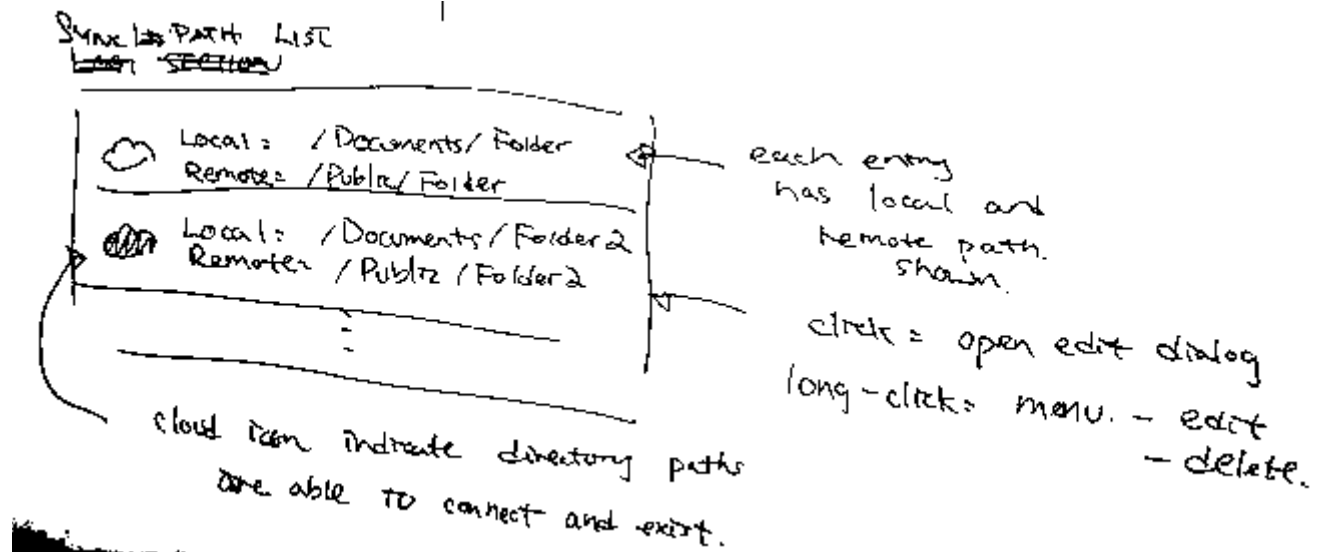 Sync PATH LIST
Local: /Documents/Folder
Remote: /Public/Folder
Local: /Documents/Folder2
Remote: /Public/Folder2
each entry
has local and
remote path.
shown.
click = open edit dialog
long-click: menu. - edit
- delete.
cloud icon indicate directory paths
are able to connect and exist.